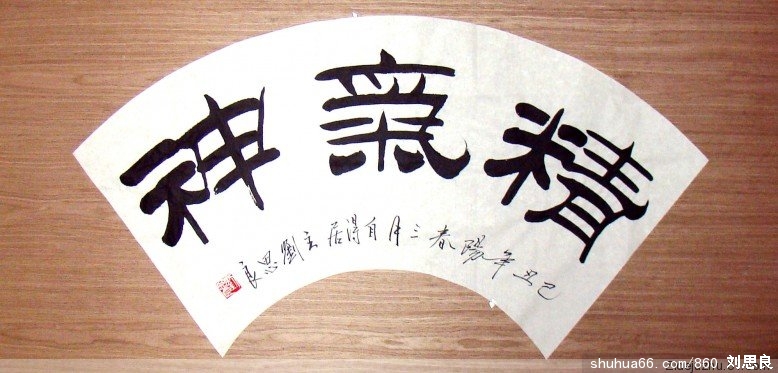 精氣神
己丑年陽春三月自得居主劉思良
shuhua66.com/860 刘思良